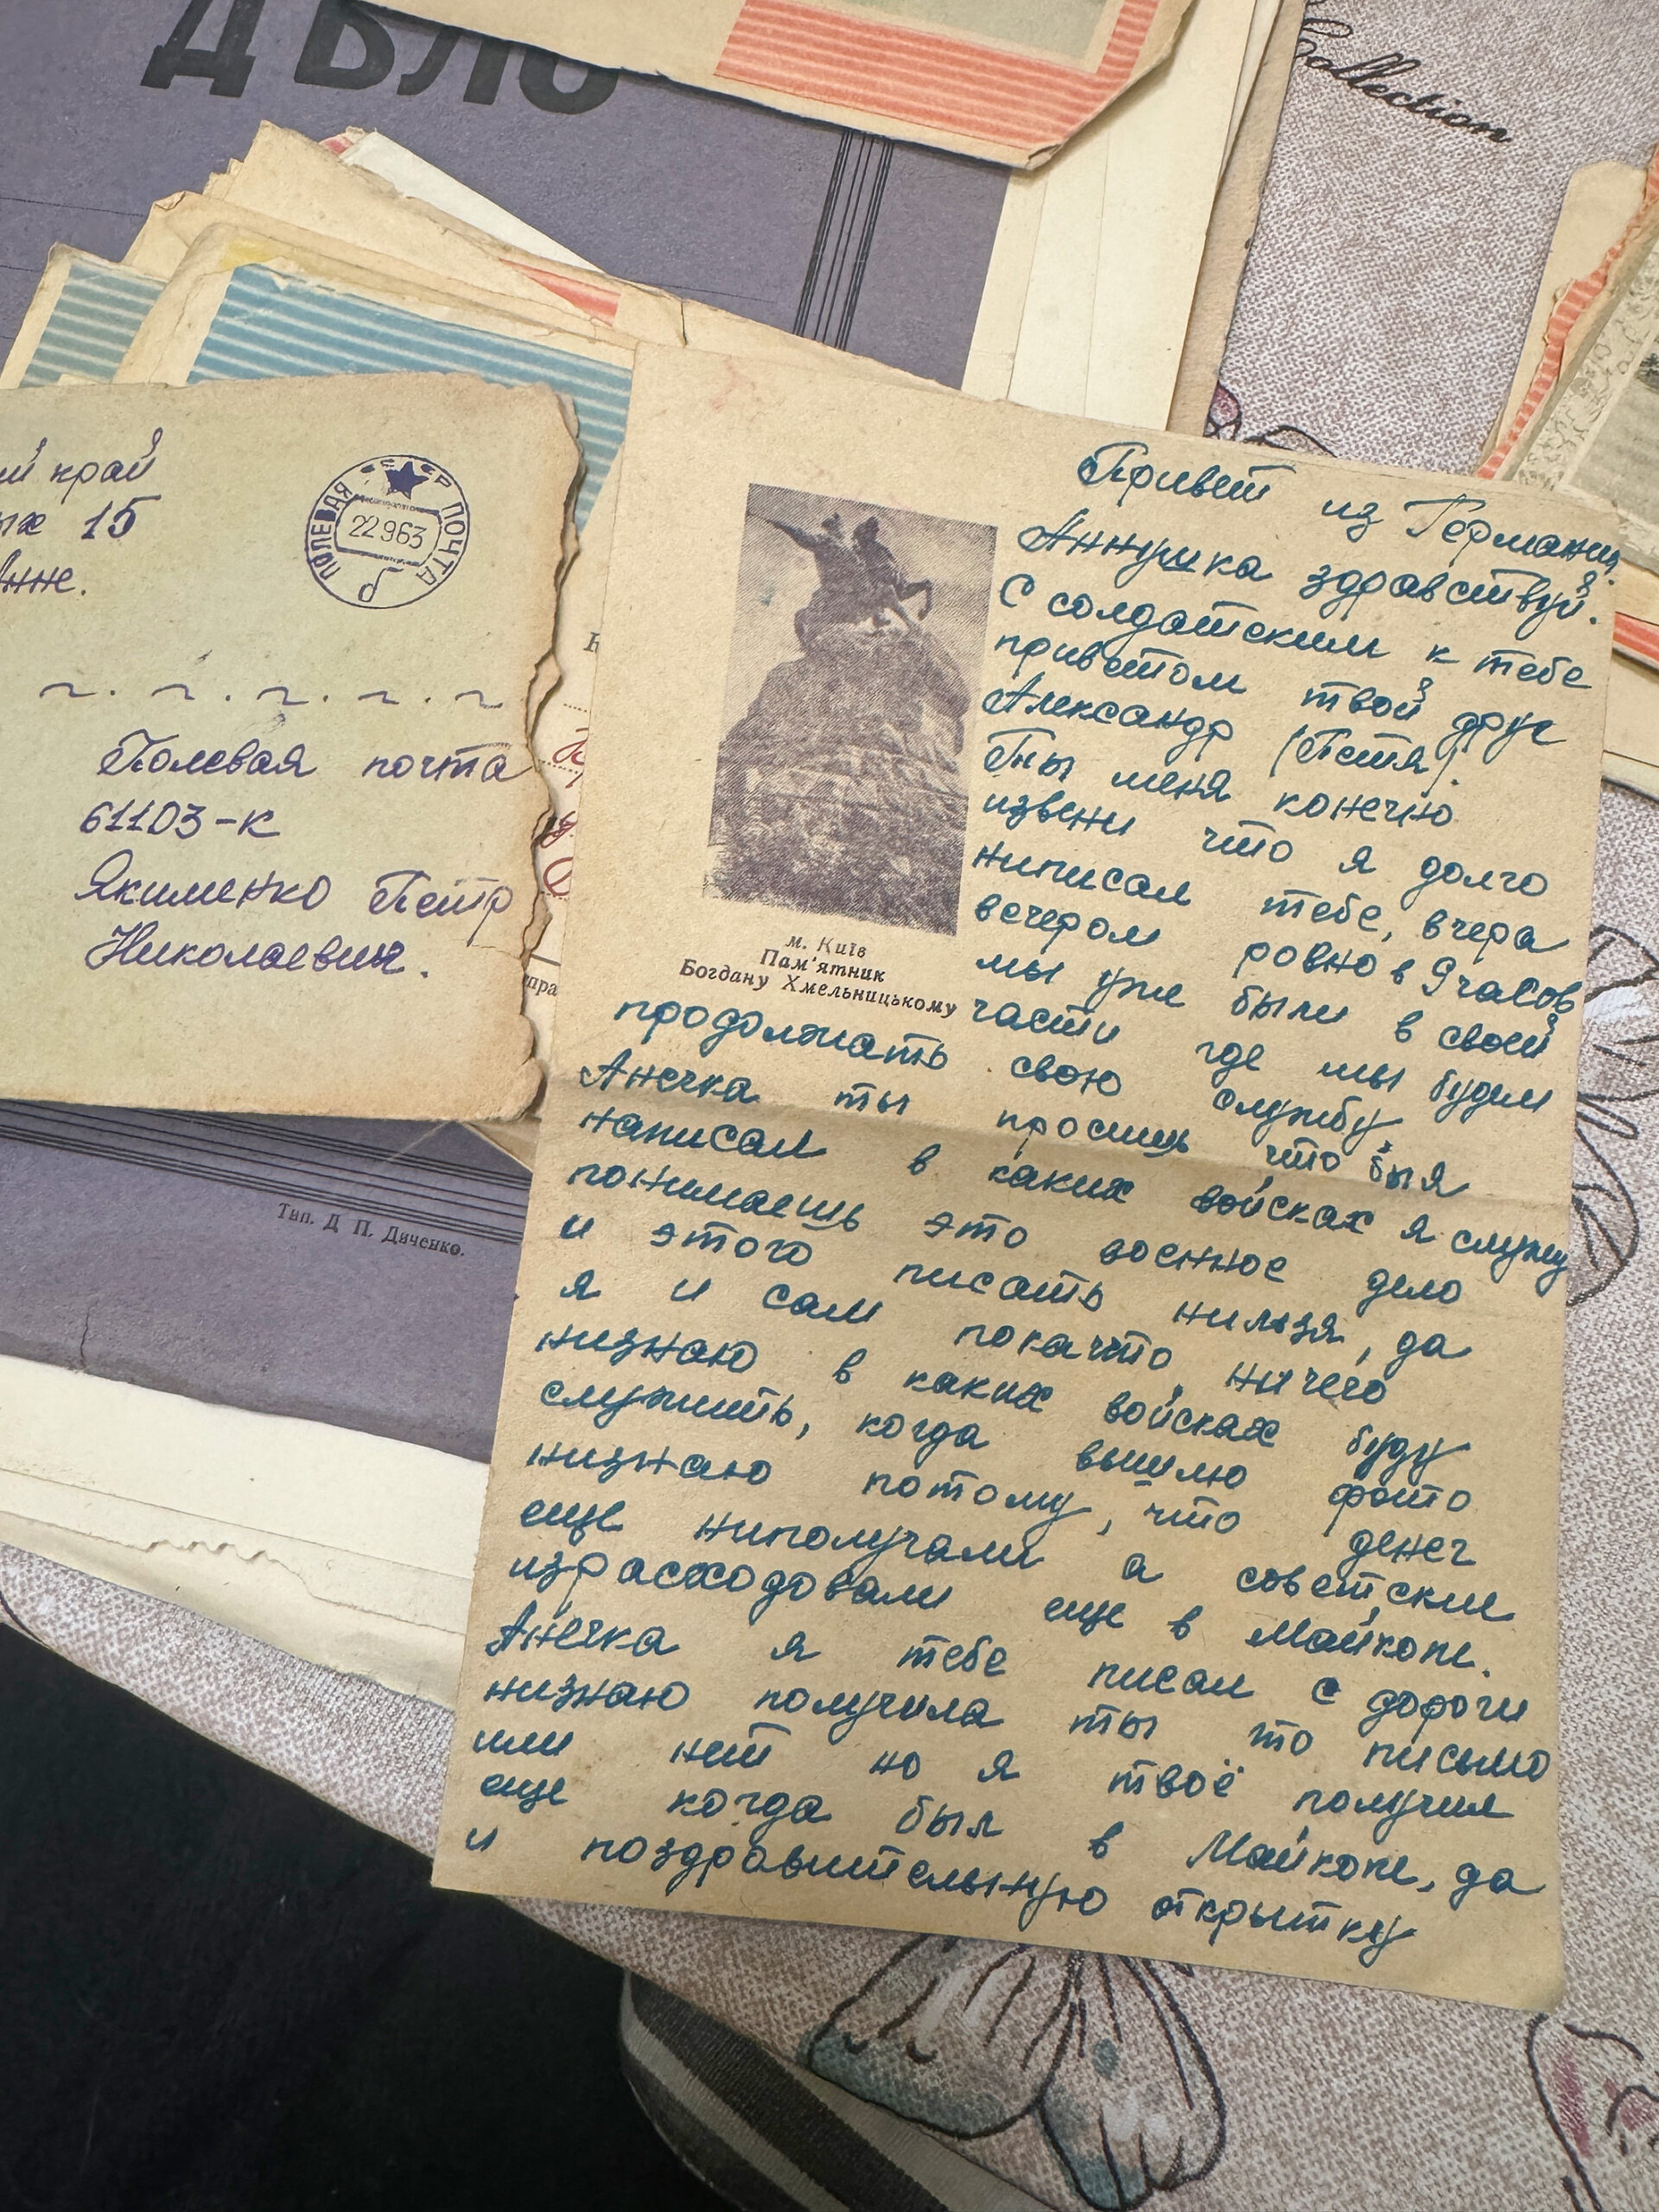 ДѢЛО
Collection
й край
15
Анне.
ПОЛЕВАЯ ПОЧТА
СССР
22 9 63
б
Полевая почта
61103-к
Якименко Петр
Николаевич.
Тип. Д П. Диченко.
м. Київ
Пам'ятник
Богдану Хмельницькому
Привет из Германии
Аннушка здравствуй.
С солдатским к тебе
приветом твой друг
Александр (Петя).
Ты меня конечно
извени что я долго
ниписал тебе, вчера
вечером ровно в 9 часов
мы уже были в своей
части где мы будем
продолжать свою службу
Анечка ты просишь что бы я
написал в каких войсках я служу
понимаешь это военное дело
и этого писать нильзя, да
я и сам покачто ничего
низнаю в каких войсках буду
служить, когда вышлю фото
низнаю потому, что денег
еще ниполучали а советские
израсходовали еще в Майкопе.
Анечка я тебе писал с дороги
низнаю получила ты то письмо
или нет но я твоё получил
еще когда был в Майкопе, да
и поздравительную открытку